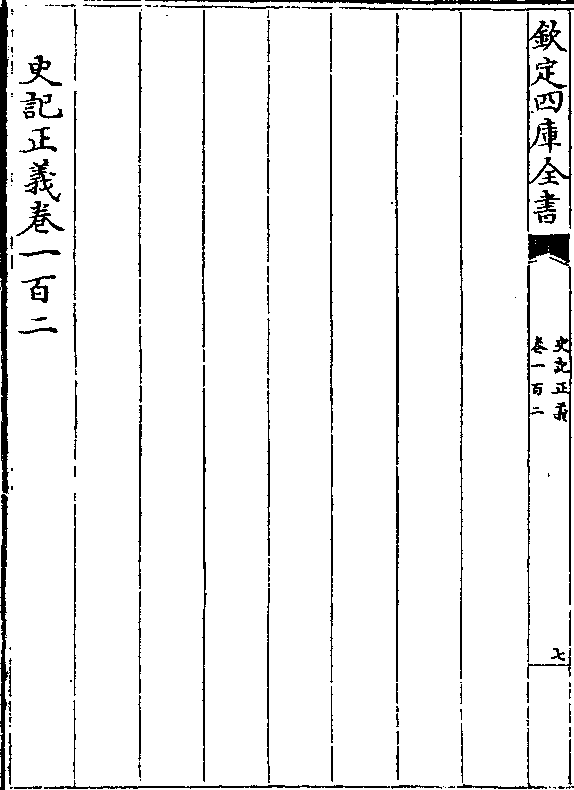 欽定四庫全書
史記正義
卷一百二
七
史記正義卷一百二